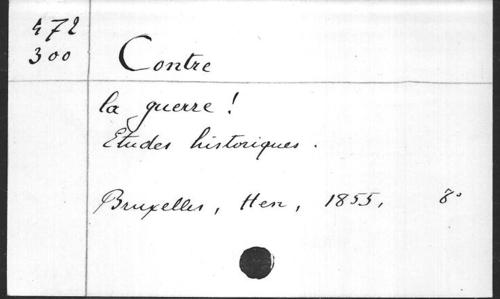 472
300
Contre
la guerre !
Etudes historiques .
Bruxelles, Hen, 1855, 8°